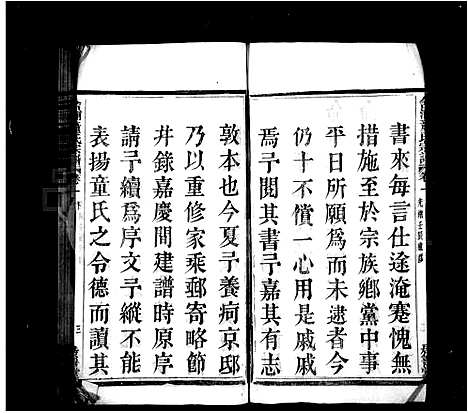 書來每言仕途淹蹇愧無
措施至於宗族鄉黨中事
平日所願為而未逮者今
仍十不償一心用是戚戚
焉予閱其書予嘉其有志
敦本也今夏予養疴京邸
乃以重修家乘郵寄略節
幷錄嘉慶間建譜時原序
請予續爲序文予縱不能
表揚童氏之令德而讀其
三